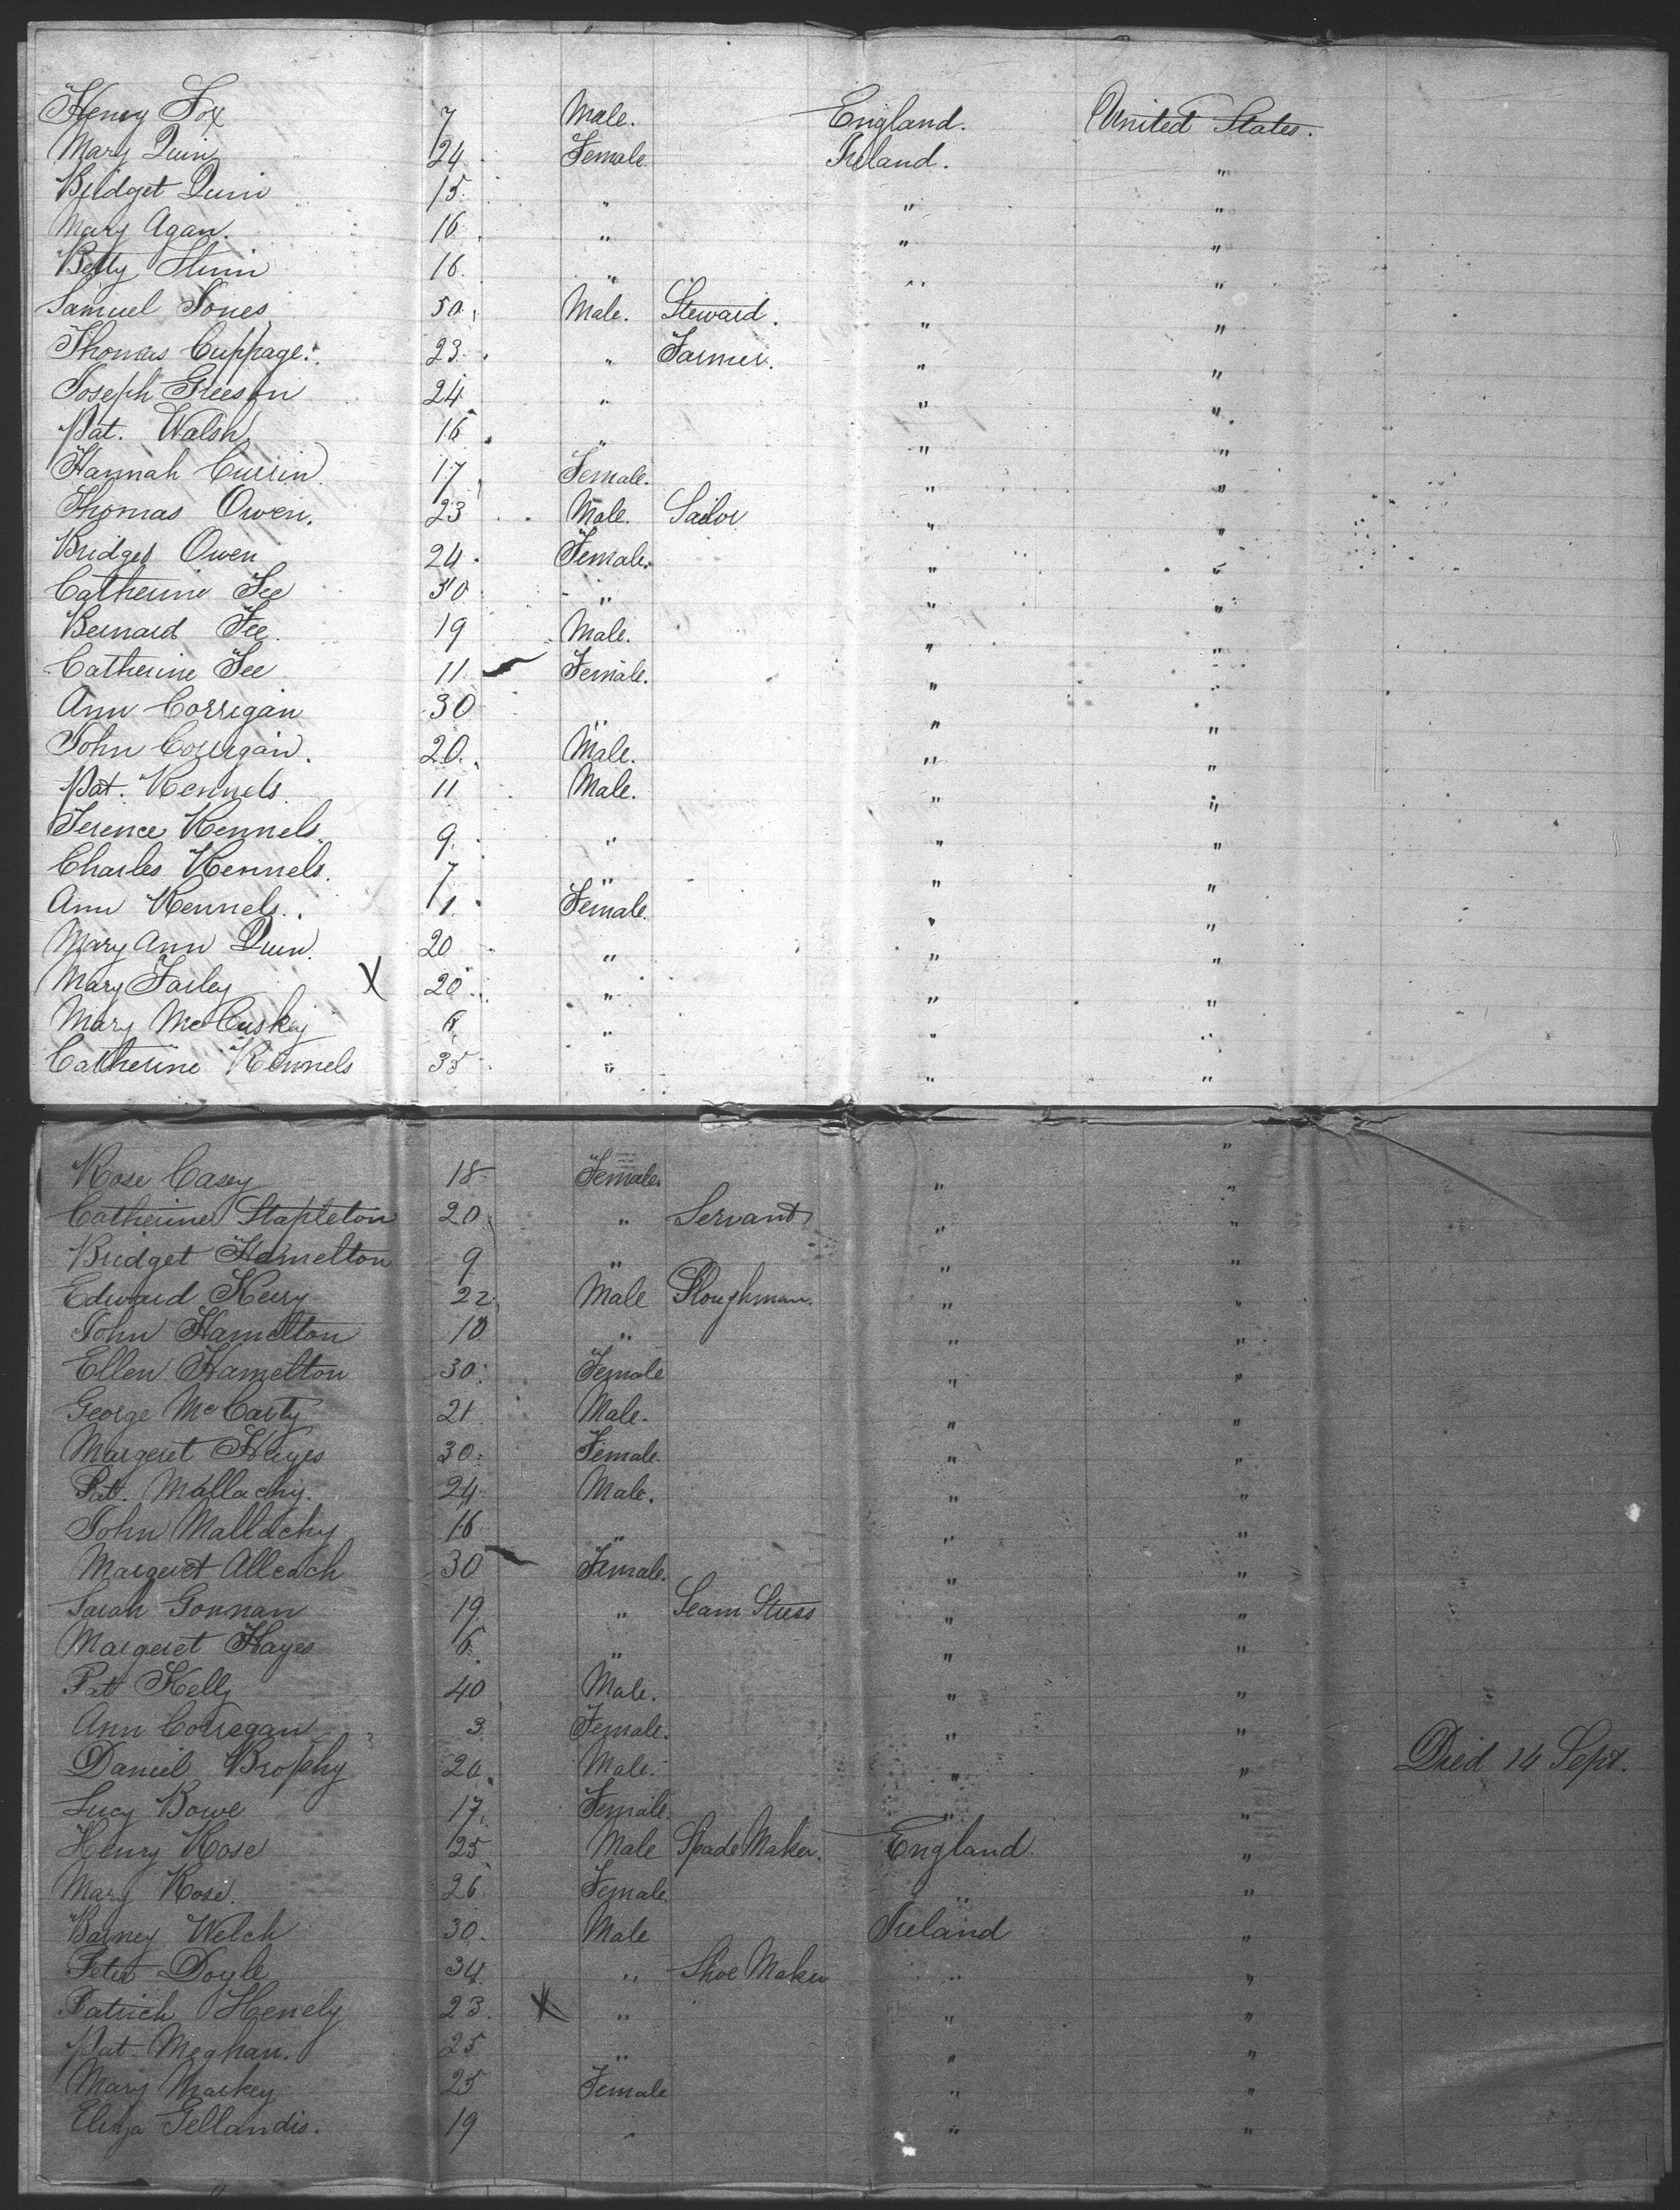 Henry Fox 7 Male. England. United States.
Mary Quin 24 Female. Ireland. "
Bridget Quin 15 " " "
Mary Agan. 16 " " "
Betty 16. " " "
Samuel Jones 50 Male. Steward. " "
Thomas Cuppage. 23 " Farmer. " "
Joseph Greeson 24 " " "
Pat. Walsh 16 " " "
Hannah Currin. 17 Female. " "
Thomas Owen. 23 Male. Sailor " "
Bridget Owen 24 Female. " "
Catherine Fee 50 " " "
Bernard Fee. 19 Male. " "
Catherine Fee 11 Female. " "
Ann Corrigan 30 " " "
John Corrigan. 20 Male. " "
Pat. Kennels 11 Male. " "
Terence Kennels. 9. " " "
Charles Kennels. 7 " " "
Ann Kennels. 1. Female. " "
Mary Ann Quin. 20 " " "
Mary Farley X 20 " " "
Mary McCuskey " " "
Catherine Kennels 35 " " "
Rose Casey 18 Female. " "
Catherine Stapleton 20 " Servant " "
Bridget Hamelton 9 " " "
Edward Kerry 22 Male Ploughman. " "
John Hamelton 10 " " "
Ellen Hamelton 30 Female " "
George McCarty 21 Male. " "
Margeret Hayes 30 Female. " "
Pat. Mallachy. 24 Male. " "
John Mallachy 16 " " "
Margeret Alleach 30 Female. " "
Sarah Gonnan 19 " Seam Stress " "
Margeret Hayes 6 " " "
Pat Kelly 40 Male. " "
Ann Corregan 3 Female. " "
Daniel Brophy 20 Male. " " Died 14 Sept.
Lucy Bowe 17. Female. " "
Henry Rose 25 Male Spade Maker. England. "
Mary Rose. 26 Female. " "
Barney Welch 30. Male Ireland "
Peter Doyle 34 " Shoe Maker " "
Patrick Henely 23. X " " "
Pat. Meghan. 25 " " "
Mary Markey 25 Female " "
Eliza Gellandis. 19 " " "